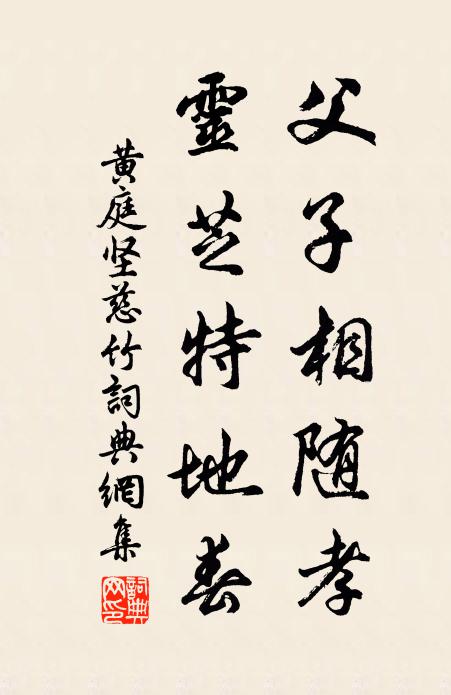 父子相随孝
靈芝特地春
黄庭坚慈竹詞典網集
詞典网印